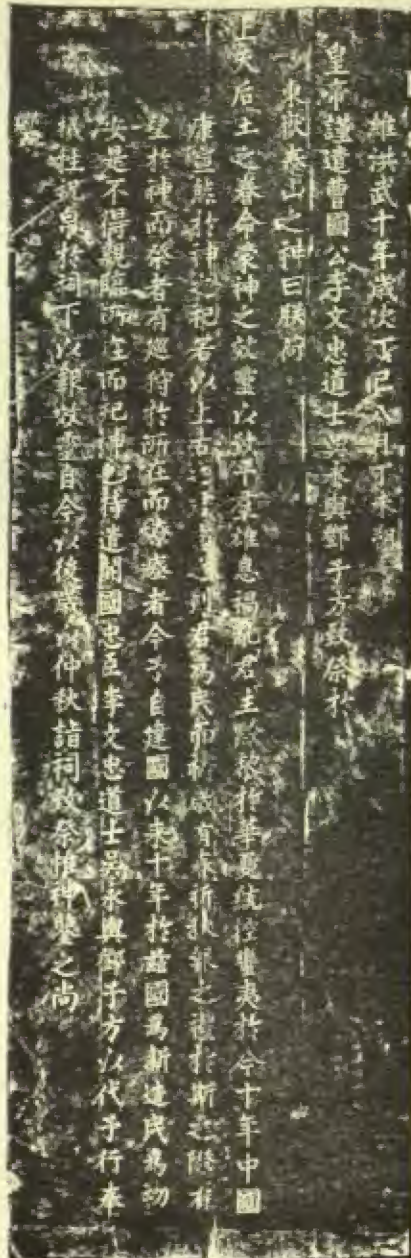 維洪武十年歲次丁巳八月丁未朔
皇帝謹遣曹國公李文忠道士吳永興鄧子方致祭於
東嶽泰山之神曰朕荷
上天后土之眷命蒙神之效靈以致平羣雄息禍亂君主黔黎於華夏統控蠻夷於今十年中國
康寧然於神之祀若以上古之君為民而祈歲有春祈秋報之禮於斯之際有
望於神而祭者有巡狩於所在而燔瘞者今予自建國以來十年於茲國為新造民為初
安是不得親臨所在而祀神也特遣開國忠臣李文忠道士吳永興鄧子方以代予行奉
犧牲祝帛於祠下以報效靈自今以後歲以仲秋詣祠致祭惟神鑒之尚
饗